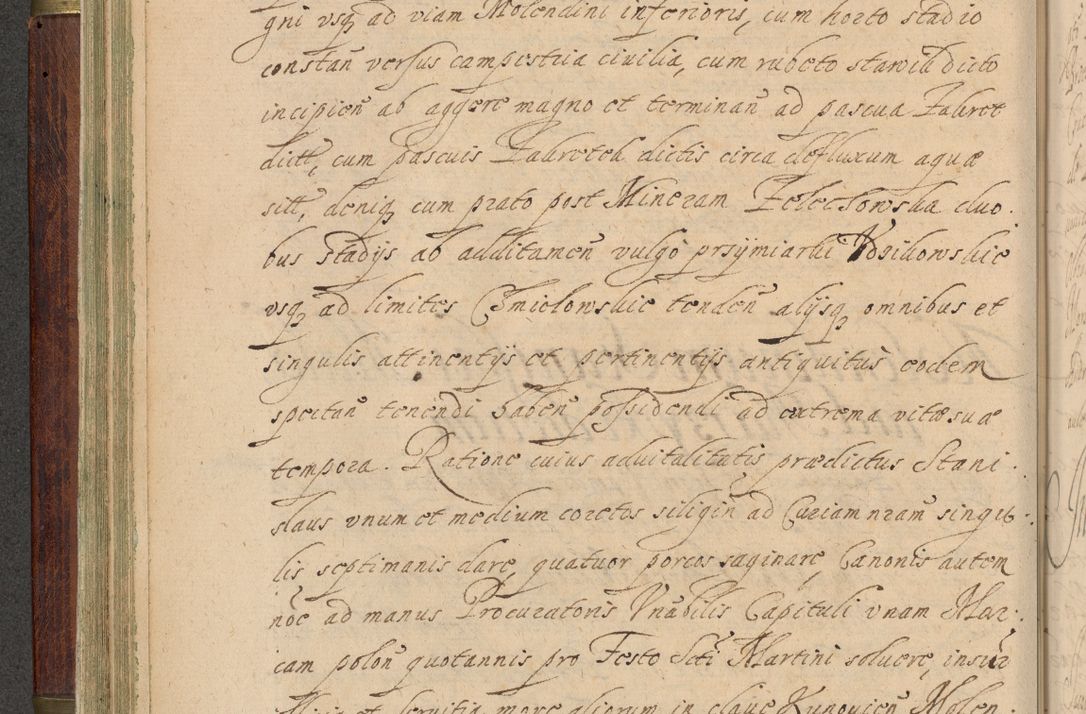 gni vsq ad viam Molendini inferioris, cum horto stadio
constan̄ versus campestria ciuilia, cum rubeto stawià dicto
incipien̄ ab aggere magno et terminan̄ ad pascua Zabrot
dict, cum pascuis Zabrotek dictis circa defluxum aquæ
sitt, deniq cum prato post Mineram Zelechowska duo.
bus stadijs ab additamen̄ vulgo przymiarki
vsq ad limites Chmielowskie tenden̄ alijsq omnibus et
singulis attinentijs et pertinentijs antiquitus eodem
spectan̄ tenendi haben̄ possidendi ad extrema vitæ suæ
tempora. Ratione cuius aduitalitatis prædictus Stani.
slaus vnum et medium coretos siligin̄ ad Curiam nram̄ singu.
lis septimanis dare, quatuor porcos saginare, Canonis autem
nōe ad manus Procuratoris Vnābilis Capituli vnam Mar.
cam polon̄ quotannis pro Festo Scti Martini soluere, insup̄
et seruitia more aliorum in claue Kunouien̄ Molen.